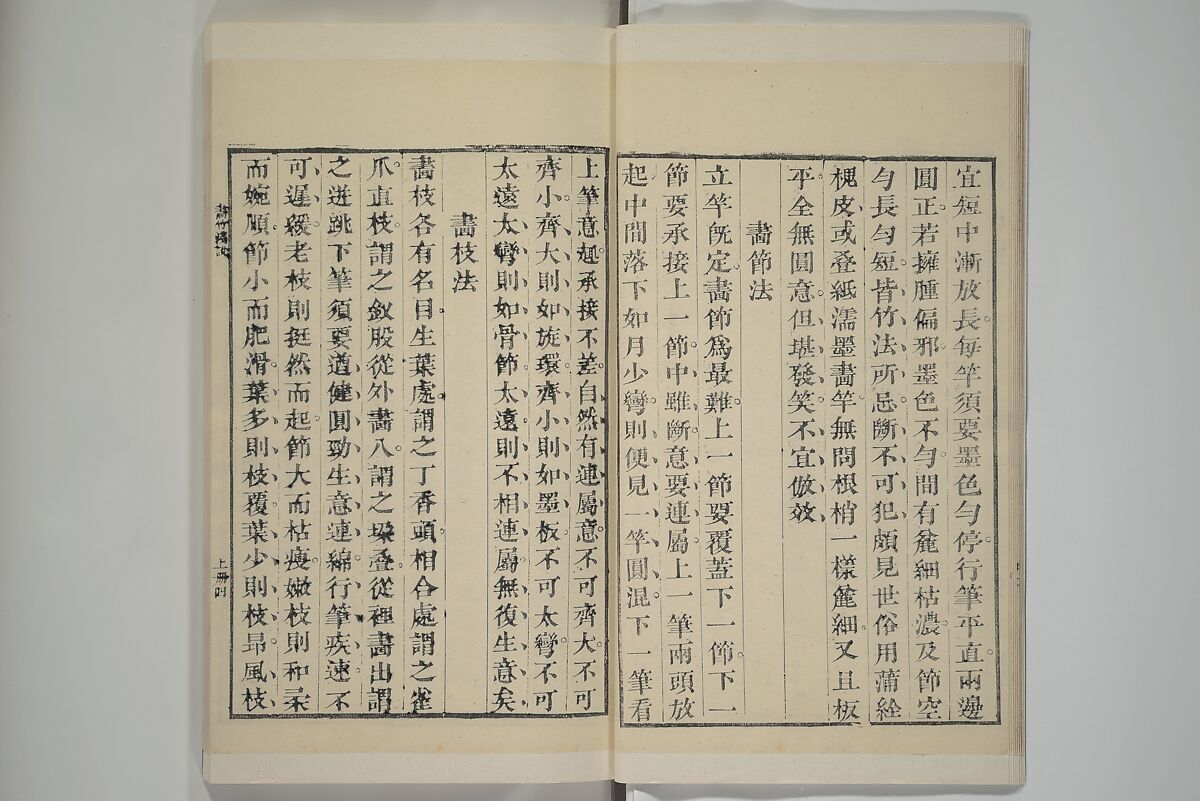 宜短中漸放長。每竿須要墨色勻停。行筆平直。兩邊
圓正。若擁腫偏邪。墨色不勻。間有麄細枯濃。及節空
勻長勻短。皆竹法所忌。斷不可犯。頗見世俗用蒲絟
槐皮。或叠紙濡墨畫竿。無問根梢。一樣麄細。又且板
平。全無圓意。但堪發笑。不宜倣效。
畫節法
立竿旣定。畫節爲最難。上一節要覆蓋下一節。下一
節要承接上一節。中雖斷意要連屬。上一筆兩頭放
起。中間落下如月少彎。則便見一竿圓混。下一筆看
上筆意趣。承接不差。自然有連屬意。不可齊大。不可
齊小。齊大則如旋環。齊小則如墨板。不可太彎。不可
太遠。太彎則如骨節。太遠則不相連屬。無復生意矣。
畫枝法
畫枝各有名目。生葉處。謂之丁香頭。相合處。謂之雀
爪。直枝。謂之釵股。從外畫入。謂之垜叠。從裡畫出。謂
之迸跳。下筆須要遒健圓勁。生意連綿。行筆疾速。不
可遲緩。老枝則挺然而起。節大而枯瘦。嫩枝則和柔
而婉順。節小而肥滑。葉多則枝覆。葉少則枝昂。風枝
上冊四